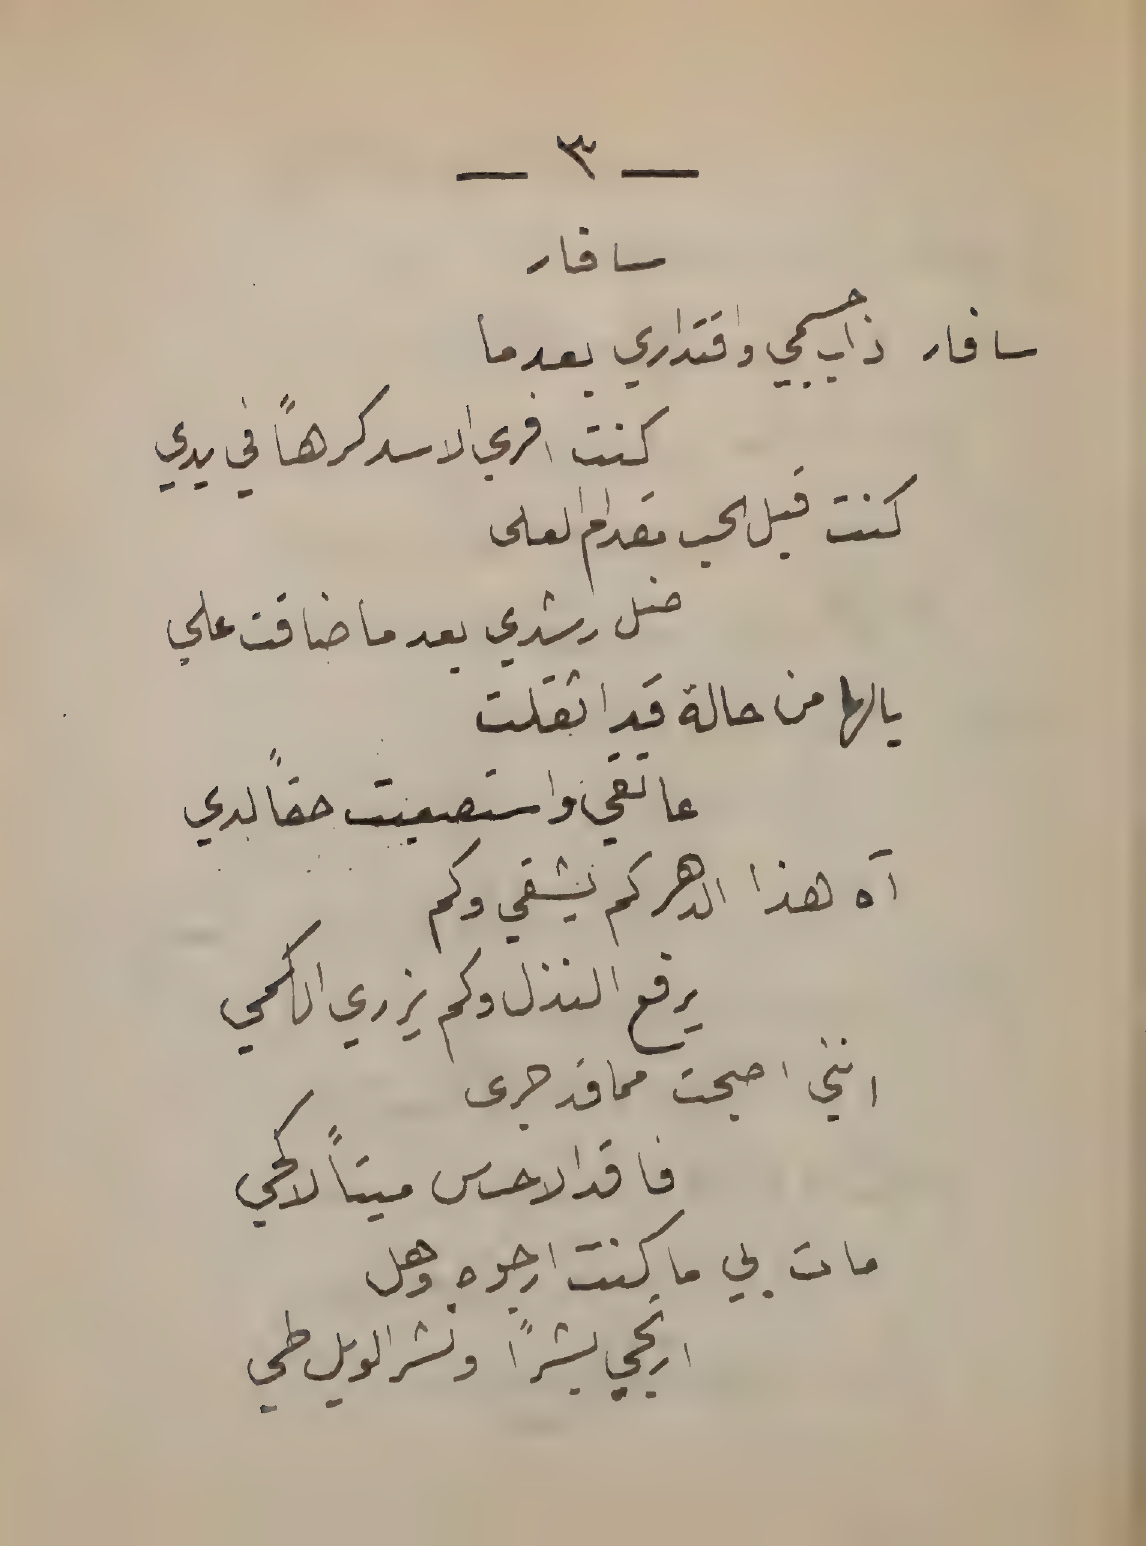 — ٣ —
سافار
سافار ذاب جسمي واقتداري بعدما
كنت افري الاسد كرهاً في يدي
كنت قبل الحب مقدام العلى
ضل رشدي بعد ما ضاقت علي
يالها من حالة قد اثقلت
عاتقي واستصعبت حقاً لدي
آه هذا الدهر كم يشقي وكم
يرفع النذل وكم يزري الكمي
انني اصبحت مما قد جرى
فاقد الاحساس ميتاً لاكحي
مات بي ما كنت ارجوه وهل
ارتجي بشراً ونشر الويل طمي